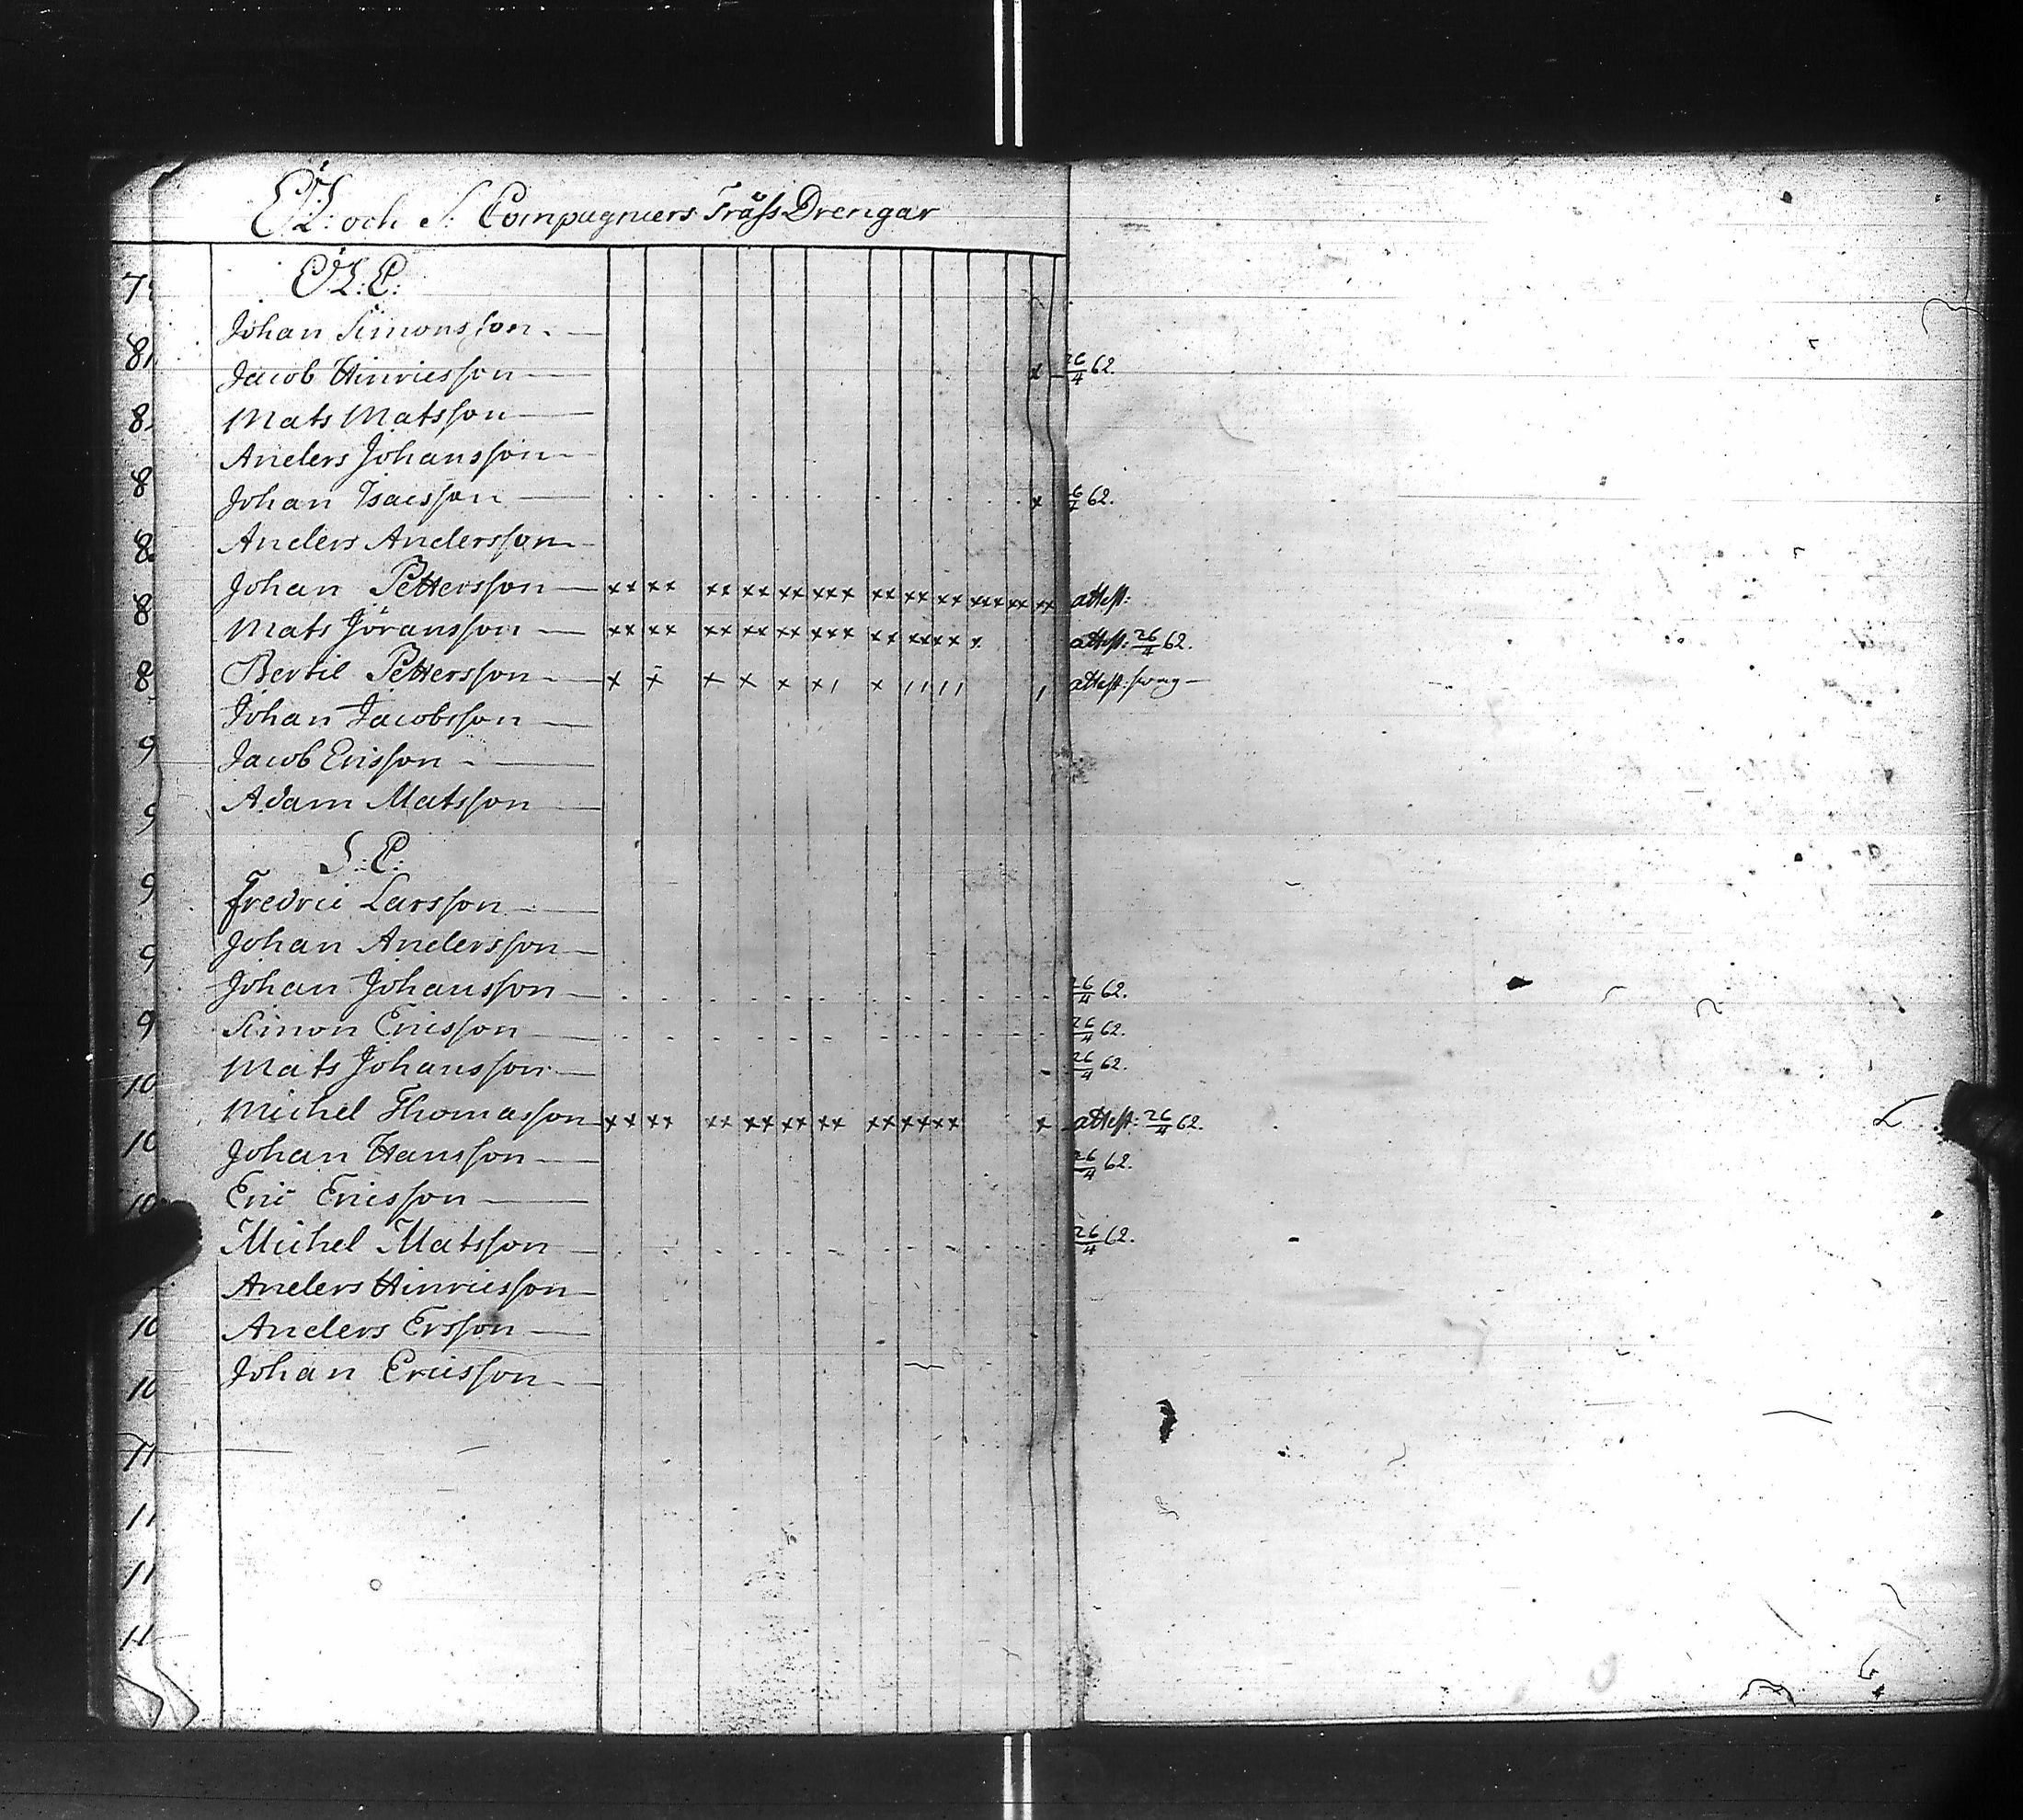 ÖL: och S: Compagniers Träss Drengar
ÖL: C:
Johan Simonsson.
Jacob Hinricsson x 26/4 62.
Mats Matsson
Anders Johansson
Johan Isacsson x 6/4 62.
Anders Andersson
Johan Pettersson xx xx xx xx xx xxx xx xx xx xxx xx xx attest:
Mats Jöransson xx xx xx xx xx xxx xx xx xx x attest: 26/4 62.
Bertil Pettersson x x x x x x / x / / / / / attest:
Johan Jacobsson
Jacob Ericsson
Adam Matsson
S: C:
Fredric Larsson
Johan Andersson
Johan Johansson 26/4 62.
Simon Ericsson 26/4 62.
Mats Johansson 26/4 62.
Michel Thomasson xx xx xx xx xx xx xx xx xx x attest: 26/4 62.
Johan Hansson 26/4 62.
Eric Ericsson
Michel Matsson 26/4 62.
Anders Hinricsson
Anders Ersson
Johan Ericsson